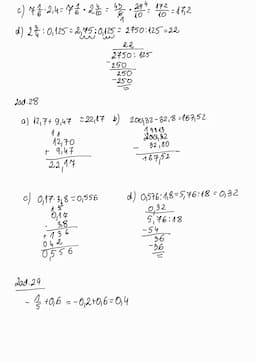 c) 7 1/6 · 2,4 = 7 1/6 · 2 4/10 = 43/6 · 24/10 = 172/10 = 17,2
d) 2 3/4 : 0,125 = 2,75 : 0,125 = 2750 : 125 = 22
22
2750 : 125
-250
250
-250
=
Zad. 28
a) 12,7 + 9,47 = 22,17 b) 200,32 - 32,8 = 167,52
12,70
+ 9,47
22,17
- 32,80
167,52
c) 0,17 · 3,8 = 0,556 d) 0,576 : 1,8 = 5,76 : 18 = 0,32
0,17
· 38
+ 136
042
0,556
0,32
5,76 : 18
-54
36
-36
=
Zad. 29
- 1/5 + 0,6 = -0,2 + 0,6 = 0,4